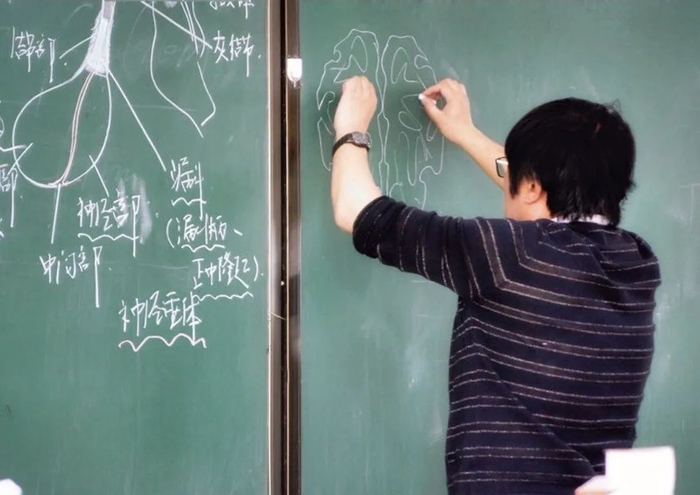 灰结节
漏斗
部
神经部
(漏斗柄、
中间部
正中隆起).
神经垂体